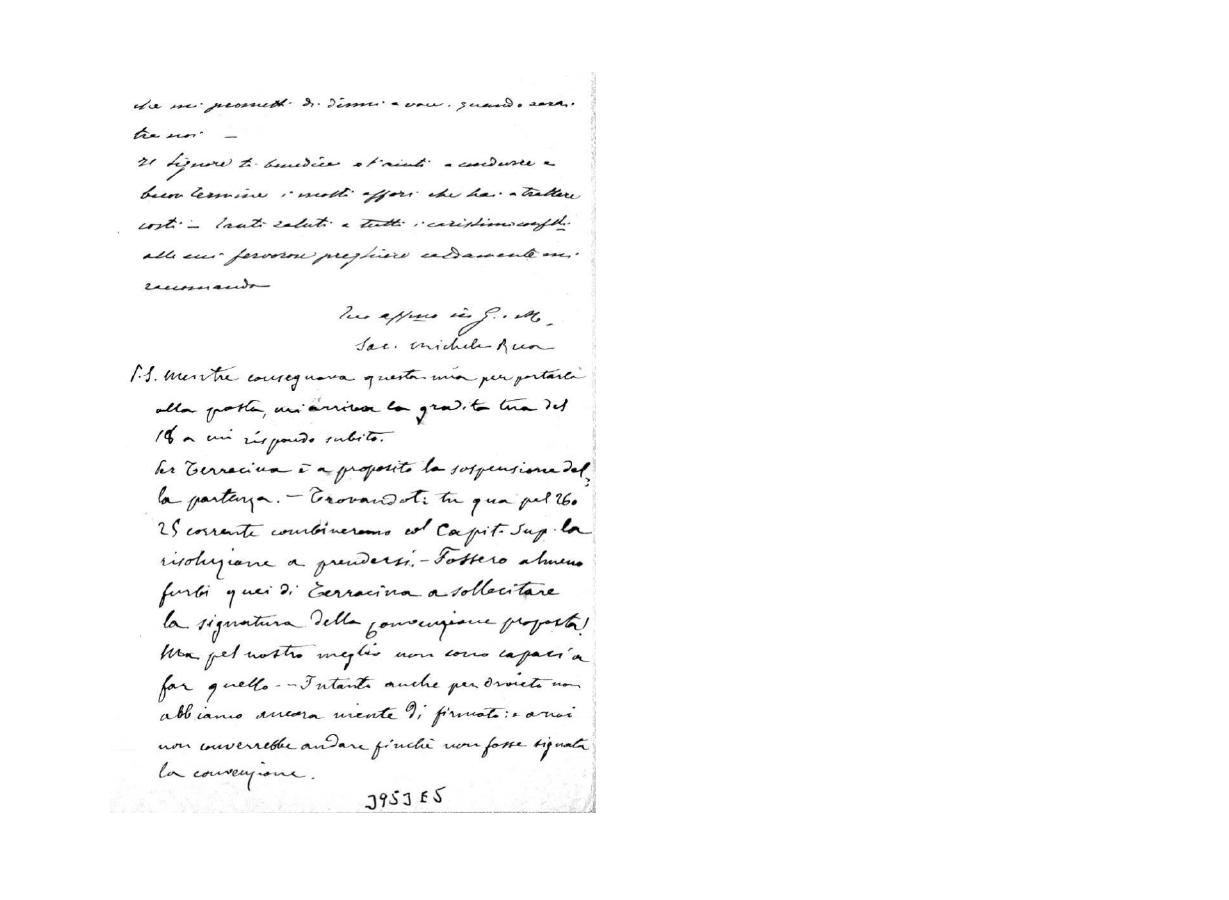 che mi prometti di dirmi a voce, quando sarai
tra noi —
Il Signore ti benedica e t'aiuti a condurre a
buon termine i molti affari che hai a trattare
costì — Tanti saluti a tutti i carissimi conflli
alle cui fervorose preghiere caldamente mi
raccomando
Tuo affmo in G. e M.
Sac. Michele Rua
P.S. Mentre consegnava questa mia per portarla
alla posta, mi arriva la gradita tua del
18 a cui rispondo subito.
Per Terracina è a proposito la sospensione del
la partenza. — Trovandoti tu qua pel 26 o
25 corrente combineremo col Capit. Sup. la
risoluzione a prendersi. — Fossero almeno
furbi quei di Terracina a sollecitare
la signatura della convenzione proposta!
Ma pel nostro meglio non sono capaci a
far quello -- Intanto anche per Orvieto non
abbiamo ancora niente di firmato: e a noi
non converrebbe andare finchè non fosse signata
la convenzione.
3953 E5